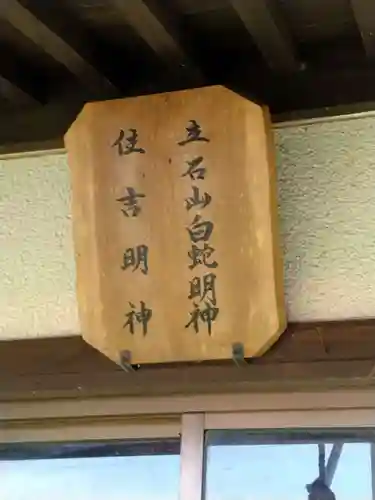 立石山白蛇明神
住吉明神